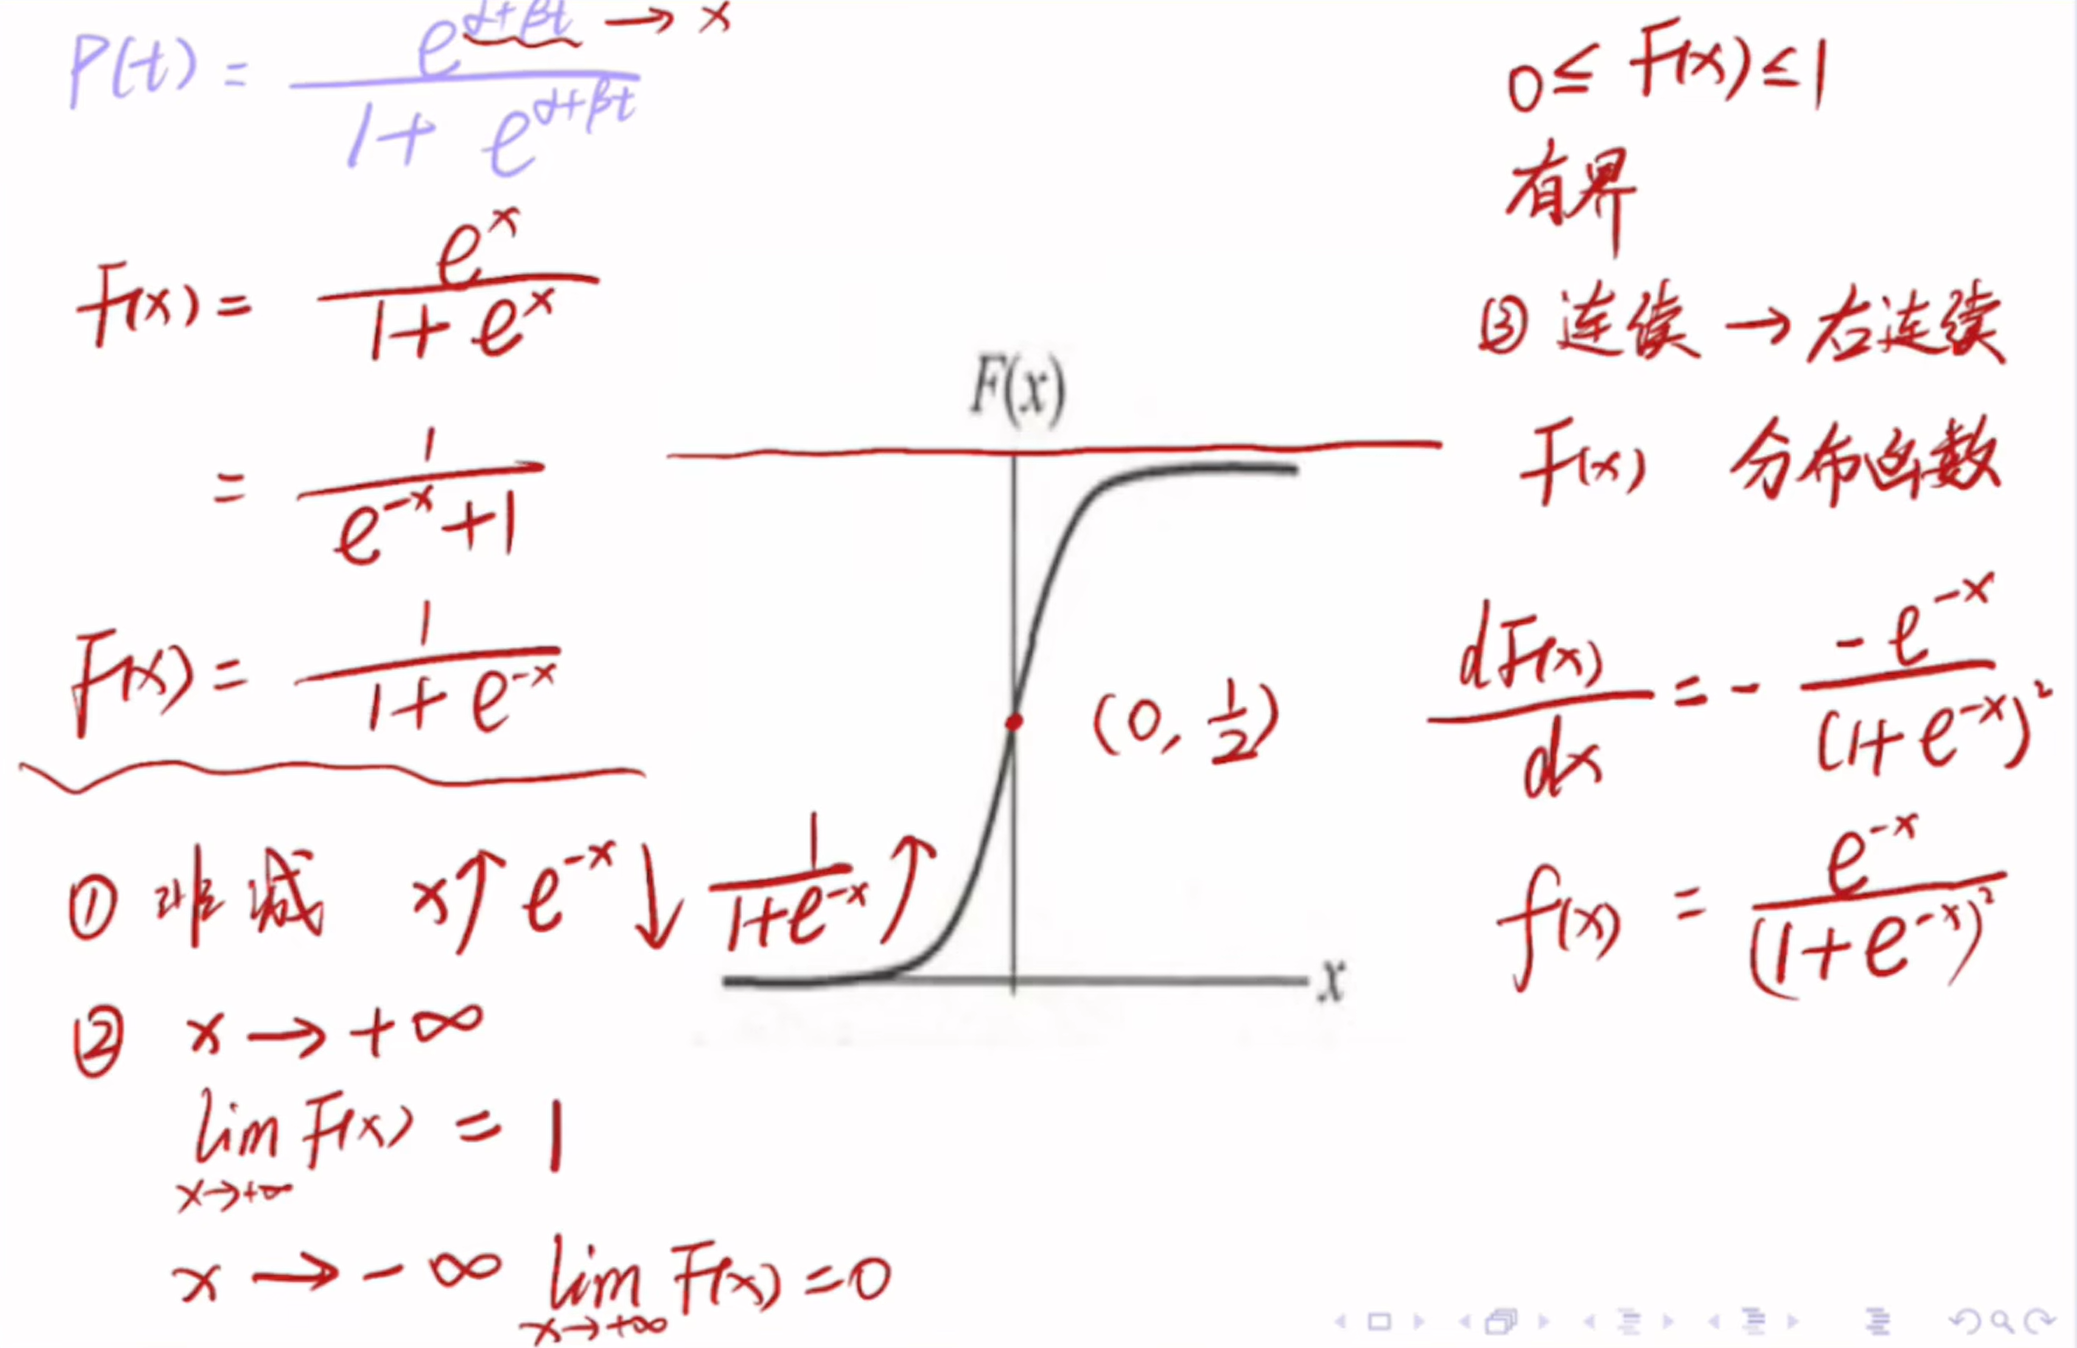 P(t) = e^{α+βt} / (1 + e^{α+βt}) → x
F(x) = e^x / (1 + e^x)
= 1 / (e^{-x} + 1)
F(x) = 1 / (1 + e^{-x})
① 非减 x↑ e^{-x}↓ 1/(1+e^{-x}) ↑
② x → +∞
lim_{x→+∞} F(x) = 1
x → -∞ lim_{x→+∞} F(x) = 0
F(x)
(0, 1/2)
x
0 ≤ F(x) ≤ 1
有界
③ 连续 → 右连续
F(x) 分布函数
dF(x)/dx = - (-e^{-x}) / (1+e^{-x})^2
f(x) = e^{-x} / (1+e^{-x})^2